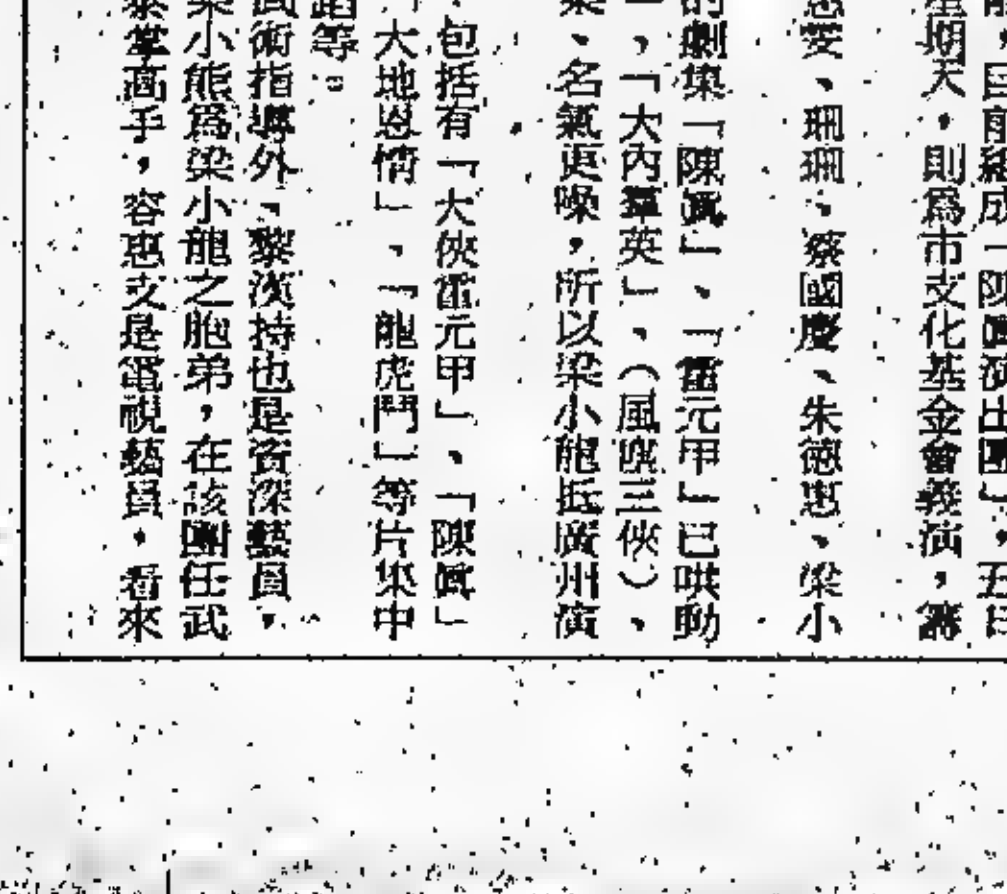 ，目前組成「陳眞演出團」，五日
期天，則爲市文化基金會義演，籌
惠雯、珊珊、蔡國慶、朱德惠、梁小
的劇集「陳眞」、「霍元甲」已哄動
，「大內羣英」、（風塵三俠）、
、名氣更噪，所以梁小龍抵廣州演
，包括有「大俠霍元甲」、「陳眞」
大地恩情」、「龍虎鬥」等片集中
蹈等。
武術指導外，黎漢持也是資深藝員，
梁小熊爲梁小龍之胞弟，在該團任武
泰拳高手，容惠文是電視藝員，看來